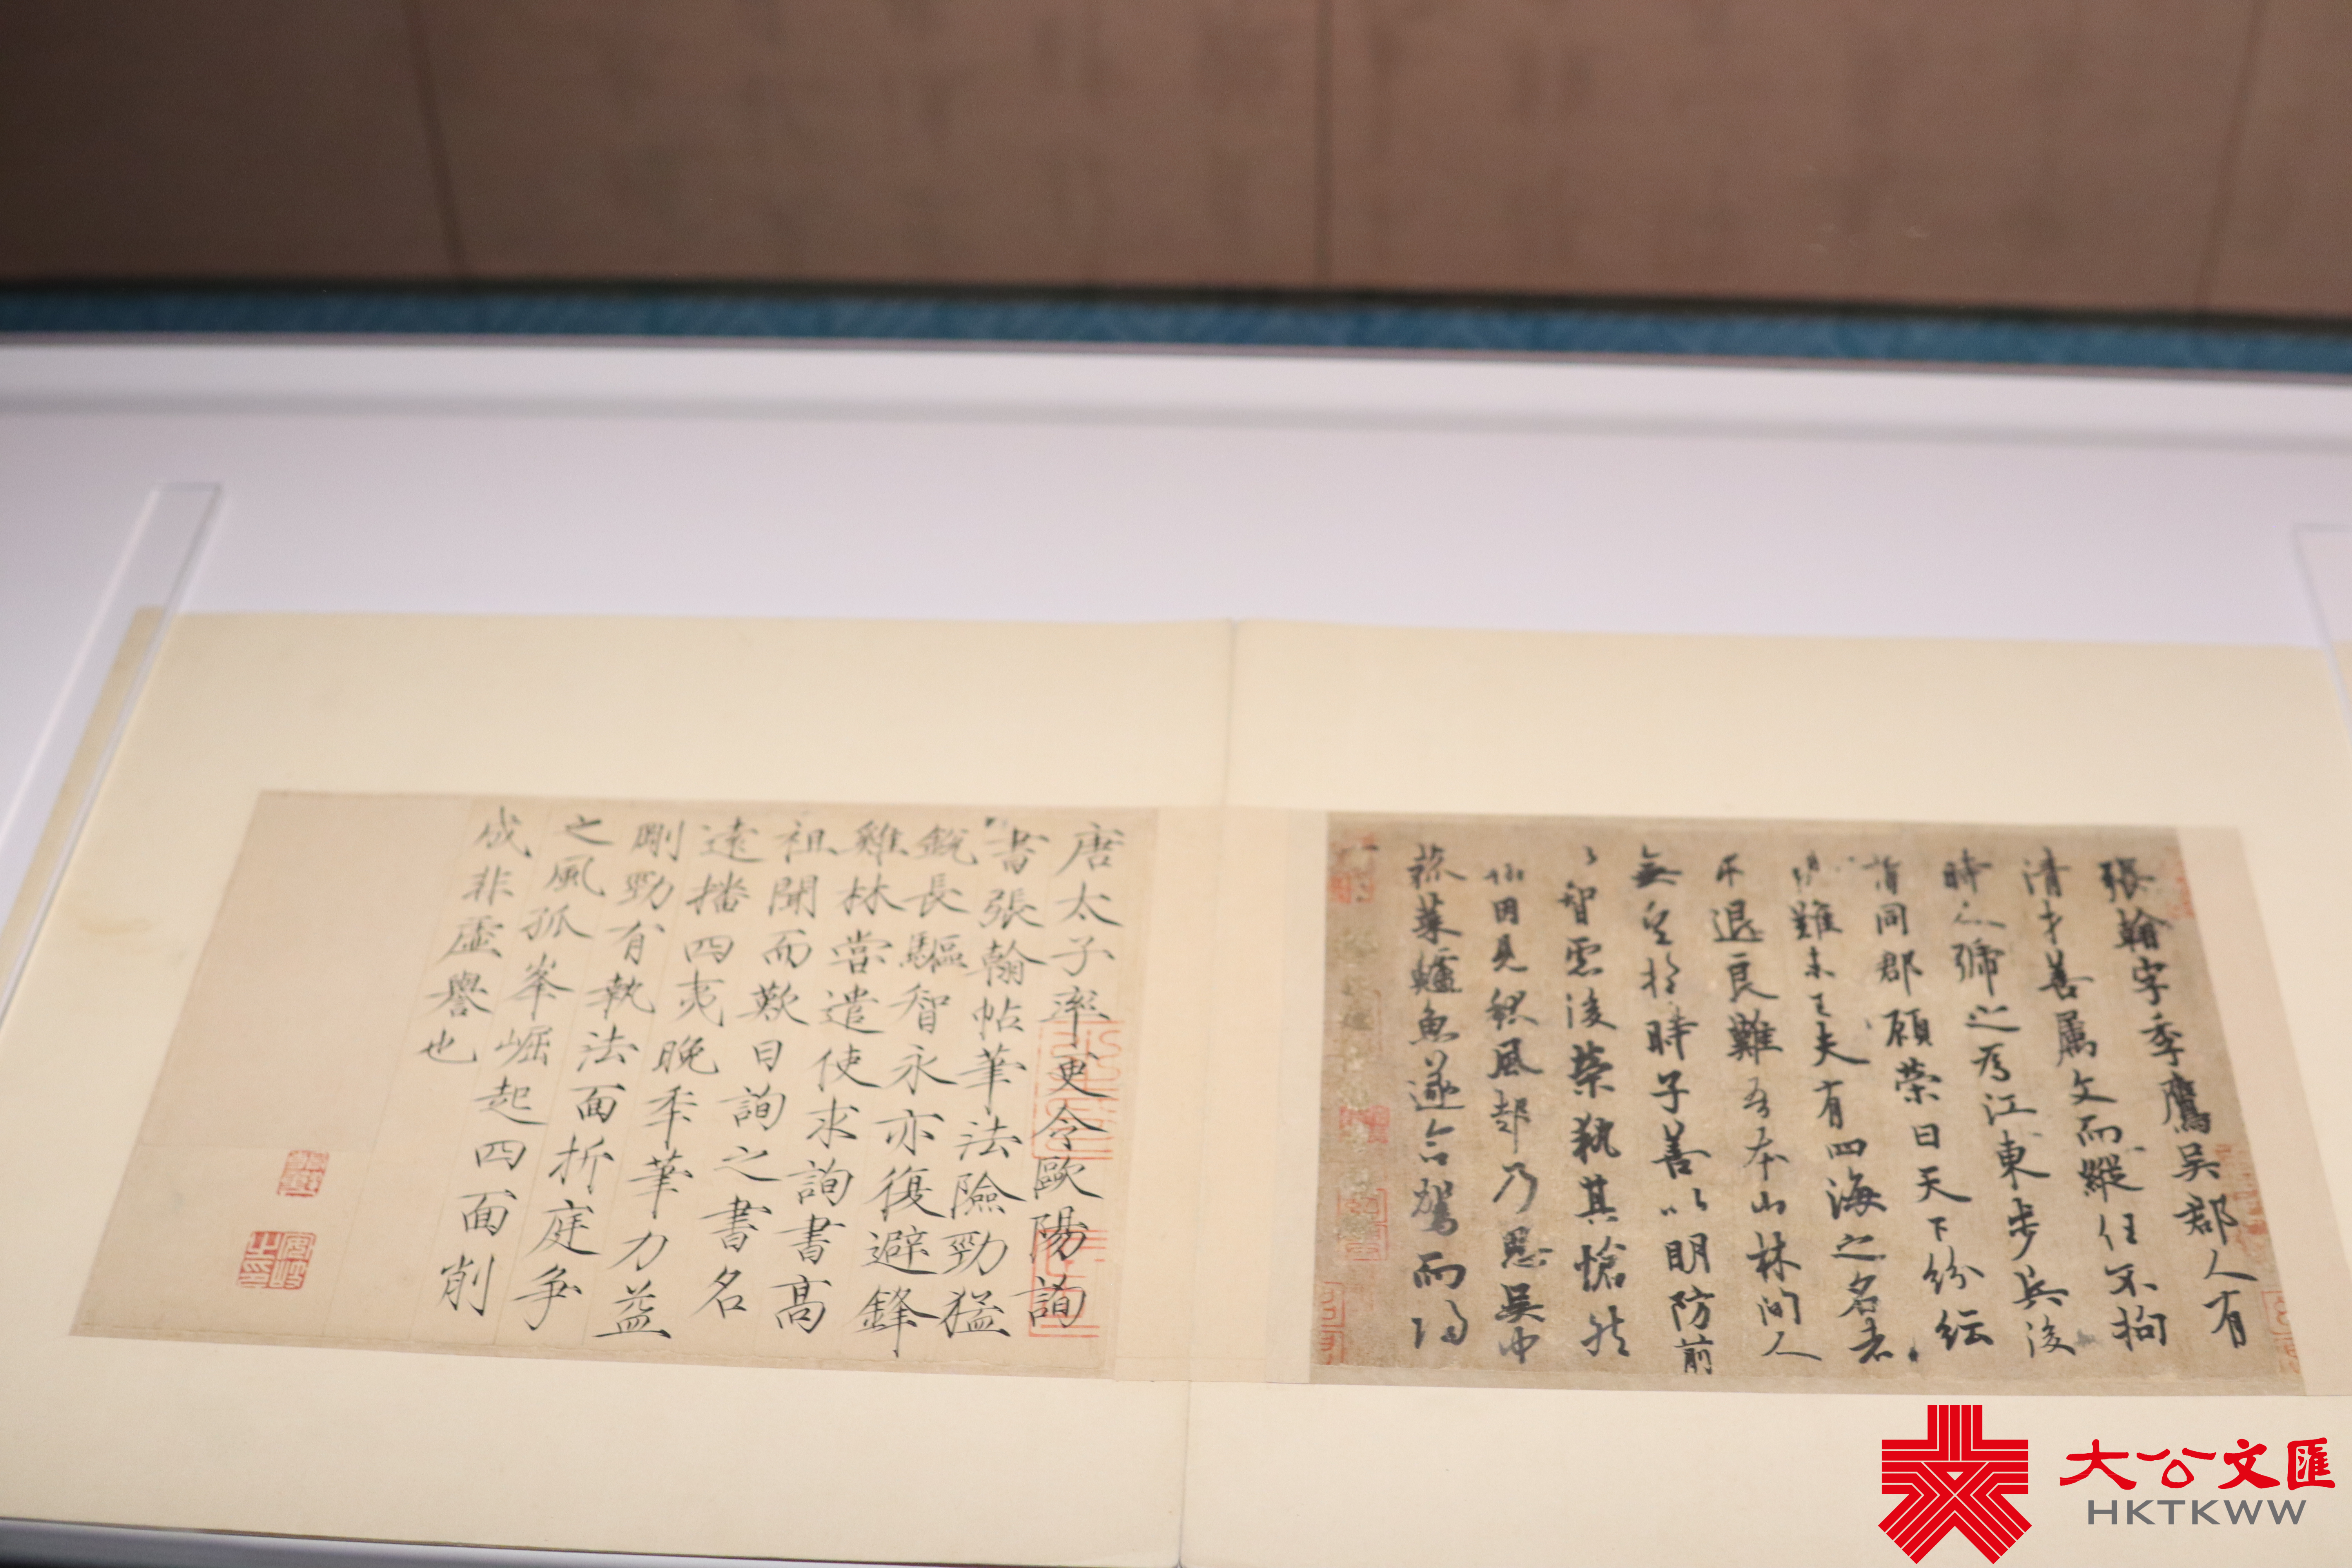 張翰字季鷹吳郡人有
清才善屬文而縱任不拘
時人號之為江東步兵後
謂同郡顧榮曰天下紛紜
禍難未已夫有四海之名者
求退良難吾本山林間人
無望於時子善以明防前
以智慮後榮執其愴然
翰因見秋風起乃思吳中
菰菜鱸魚遂命駕而歸
唐太子率更令歐陽詢
書張翰帖筆法險勁猛
銳長驅智永亦復避鋒
雞林嘗遣使求詢書高
祖聞而歎曰詢之書名
遠播四夷晚年筆力益
剛勁有執法面折庭爭
之風孤峯崛起四面削
成非虛譽也
大公文匯
HKTKWW